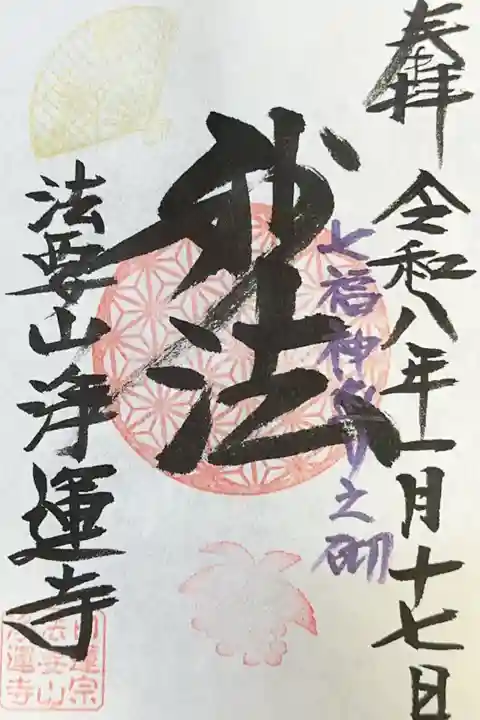 奉拝
令和八年一月十七日
七福神り之砌
妙法
法要山浄運寺
日蓮宗
法要山
浄運寺